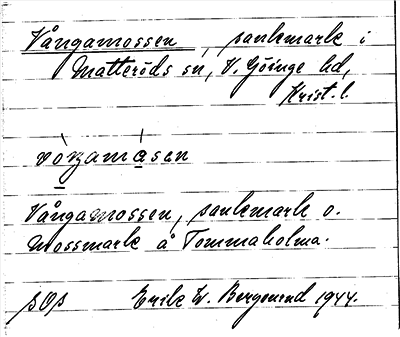 Vångamossen, sankmark i
Matteröds sn, V. Göinge hd,
Krist. l.
vòŋamásen
Vångamossen, sankmark o.
mossmark å Tommaholma.
sOs Erik W. Bergenrud 1944.